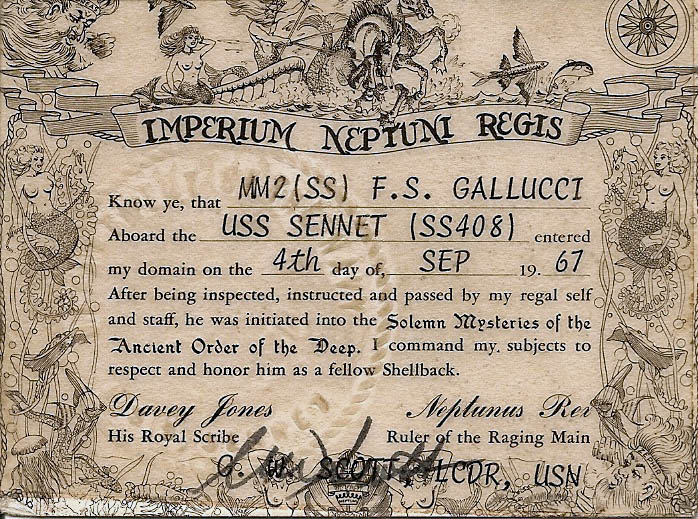 IMPERIUM NEPTUNI REGIS
Know ye, that MM2(SS) F.S. GALLUCCI
Aboard the USS SENNET (SS408) entered
my domain on the 4th day of, SEP 19. 67
After being inspected, instructed and passed by my regal self
and staff, he was initiated into the Solemn Mysteries of the
Ancient Order of the Deep. I command my. subjects to
respect and honor him as a fellow Shellback.
Davey Jones Neptunus Rex
His Royal Scribe Ruler of the Raging Main
C. W. SCOTT, LCDR, USN